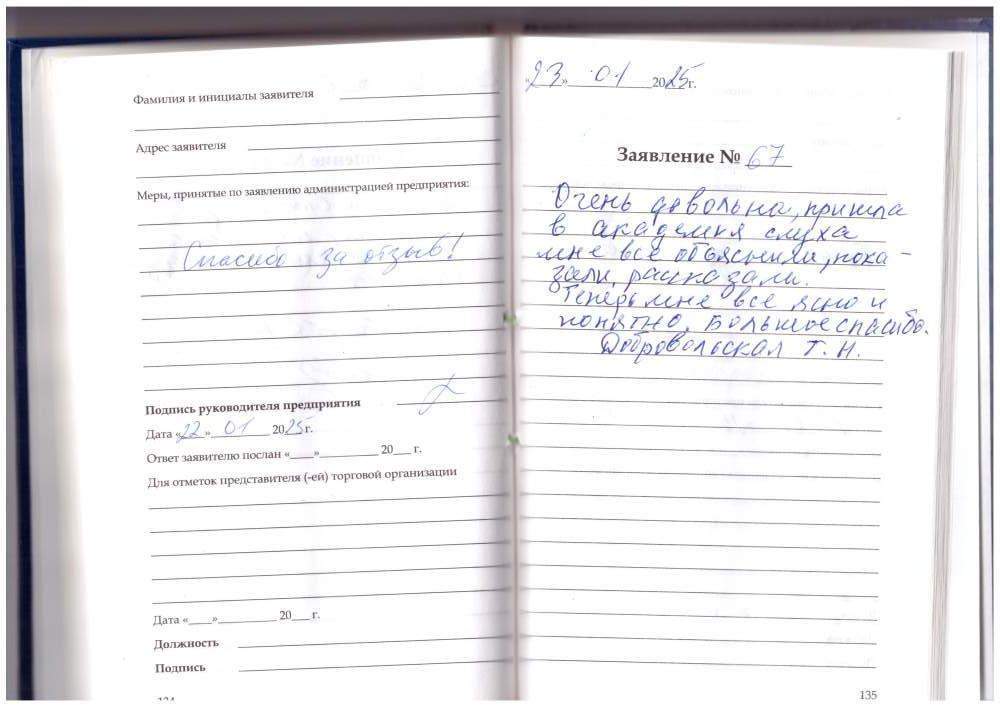 Фамилия и инициалы заявителя
Адрес заявителя
Меры, принятые по заявлению администрацией предприятия:
Спасибо за отзыв!
Подпись руководителя предприятия
Дата «22» 01 2025 г.
Ответ заявителю послан «____»__________ 20___ г.
Для отметок представителя (-ей) торговой организации
Дата «____»__________ 20___ г.
Должность
Подпись
134
«23» 01 2025 г.
Заявление № 67
Очень довольна, пришла
в академия слуха
мне всё объяснили, пока-
зали, рассказали.
Теперь мне все ясно и
понятно. Большое спасибо.
Добровольская Т. Н.
135